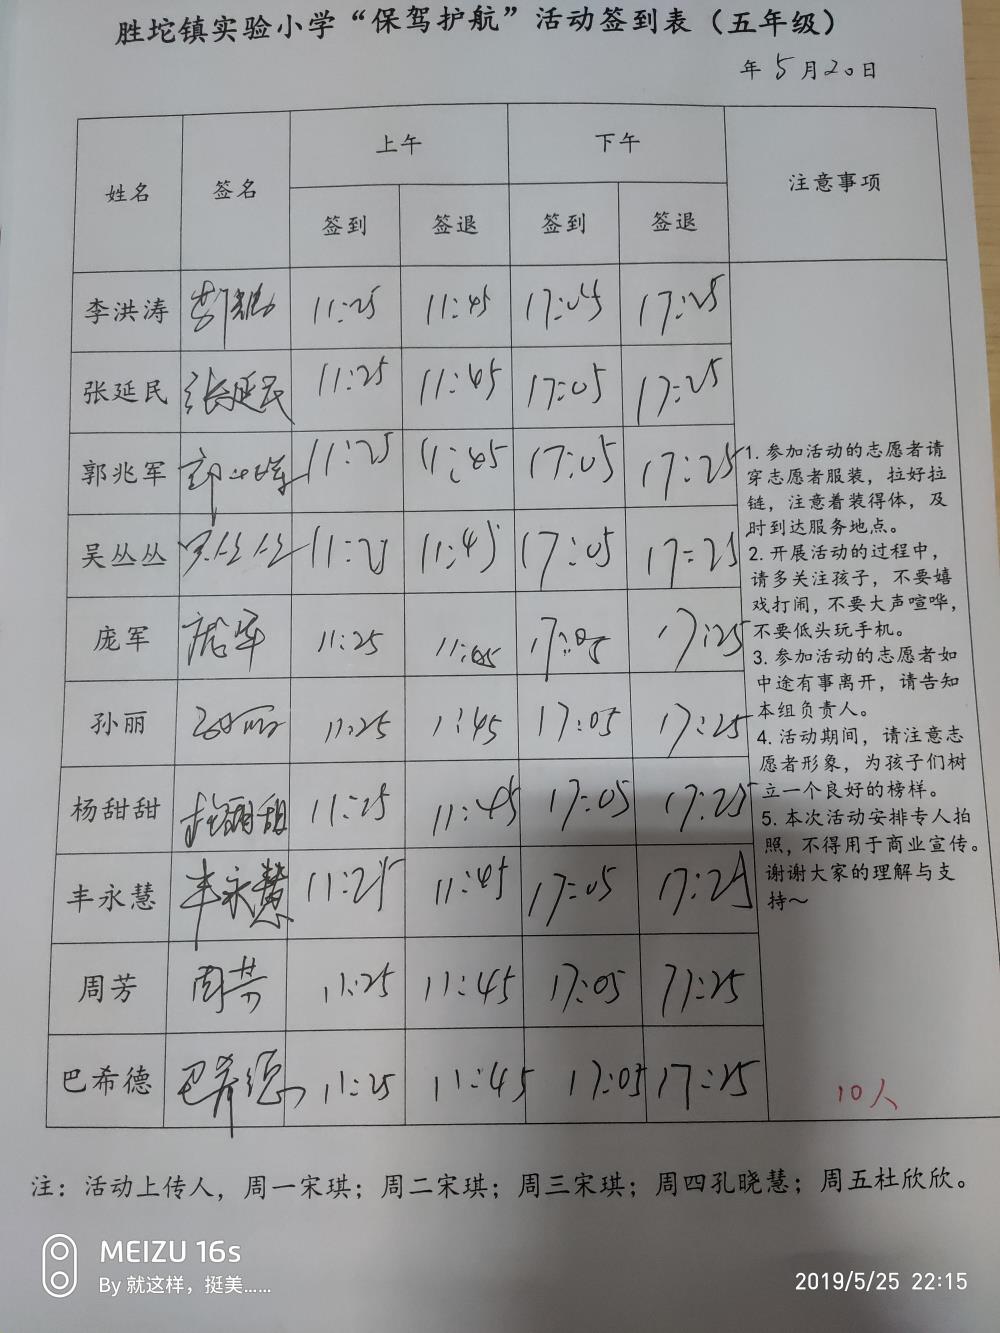 胜坨镇实验小学“保驾护航”活动签到表（五年级）
年 5 月 20 日
姓名 签名 上午 下午 注意事项
签到 签退 签到 签退
李洪涛 11:25 11:45 17:05 17:25
张延民 张延民 11:25 11:45 17:05 17:25
郭兆军 11:25 11:45 17:05 17:25
吴丛丛 吴丛丛 11:25 11:45 17:05 17:25
庞军 庞军 11:25 11:45 17:05 17:25
孙丽 孙丽 11:25 11:45 17:05 17:25
杨甜甜 杨甜甜 11:25 11:45 17:05 17:25
丰永慧 丰永慧 11:25 11:45 17:05 17:25
周芳 周芳 11:25 11:45 17:05 17:25
巴希德 巴希德 11:25 11:45 17:05 17:25
1. 参加活动的志愿者请
穿志愿者服装，拉好拉
链，注意着装得体，及
时到达服务地点。
2. 开展活动的过程中，
请多关注孩子，不要嬉
戏打闹，不要大声喧哗，
不要低头玩手机。
3. 参加活动的志愿者如
中途有事离开，请告知
本组负责人。
4. 活动期间，请注意志
愿者形象，为孩子们树
立一个良好的榜样。
5. 本次活动安排专人拍
照，不得用于商业宣传。
谢谢大家的理解与支
持～
10人
注：活动上传人，周一宋琪；周二宋琪；周三宋琪；周四孔晓慧；周五杜欣欣。
MEIZU 16s
By 就这样，挺美......
2019/5/25 22:15